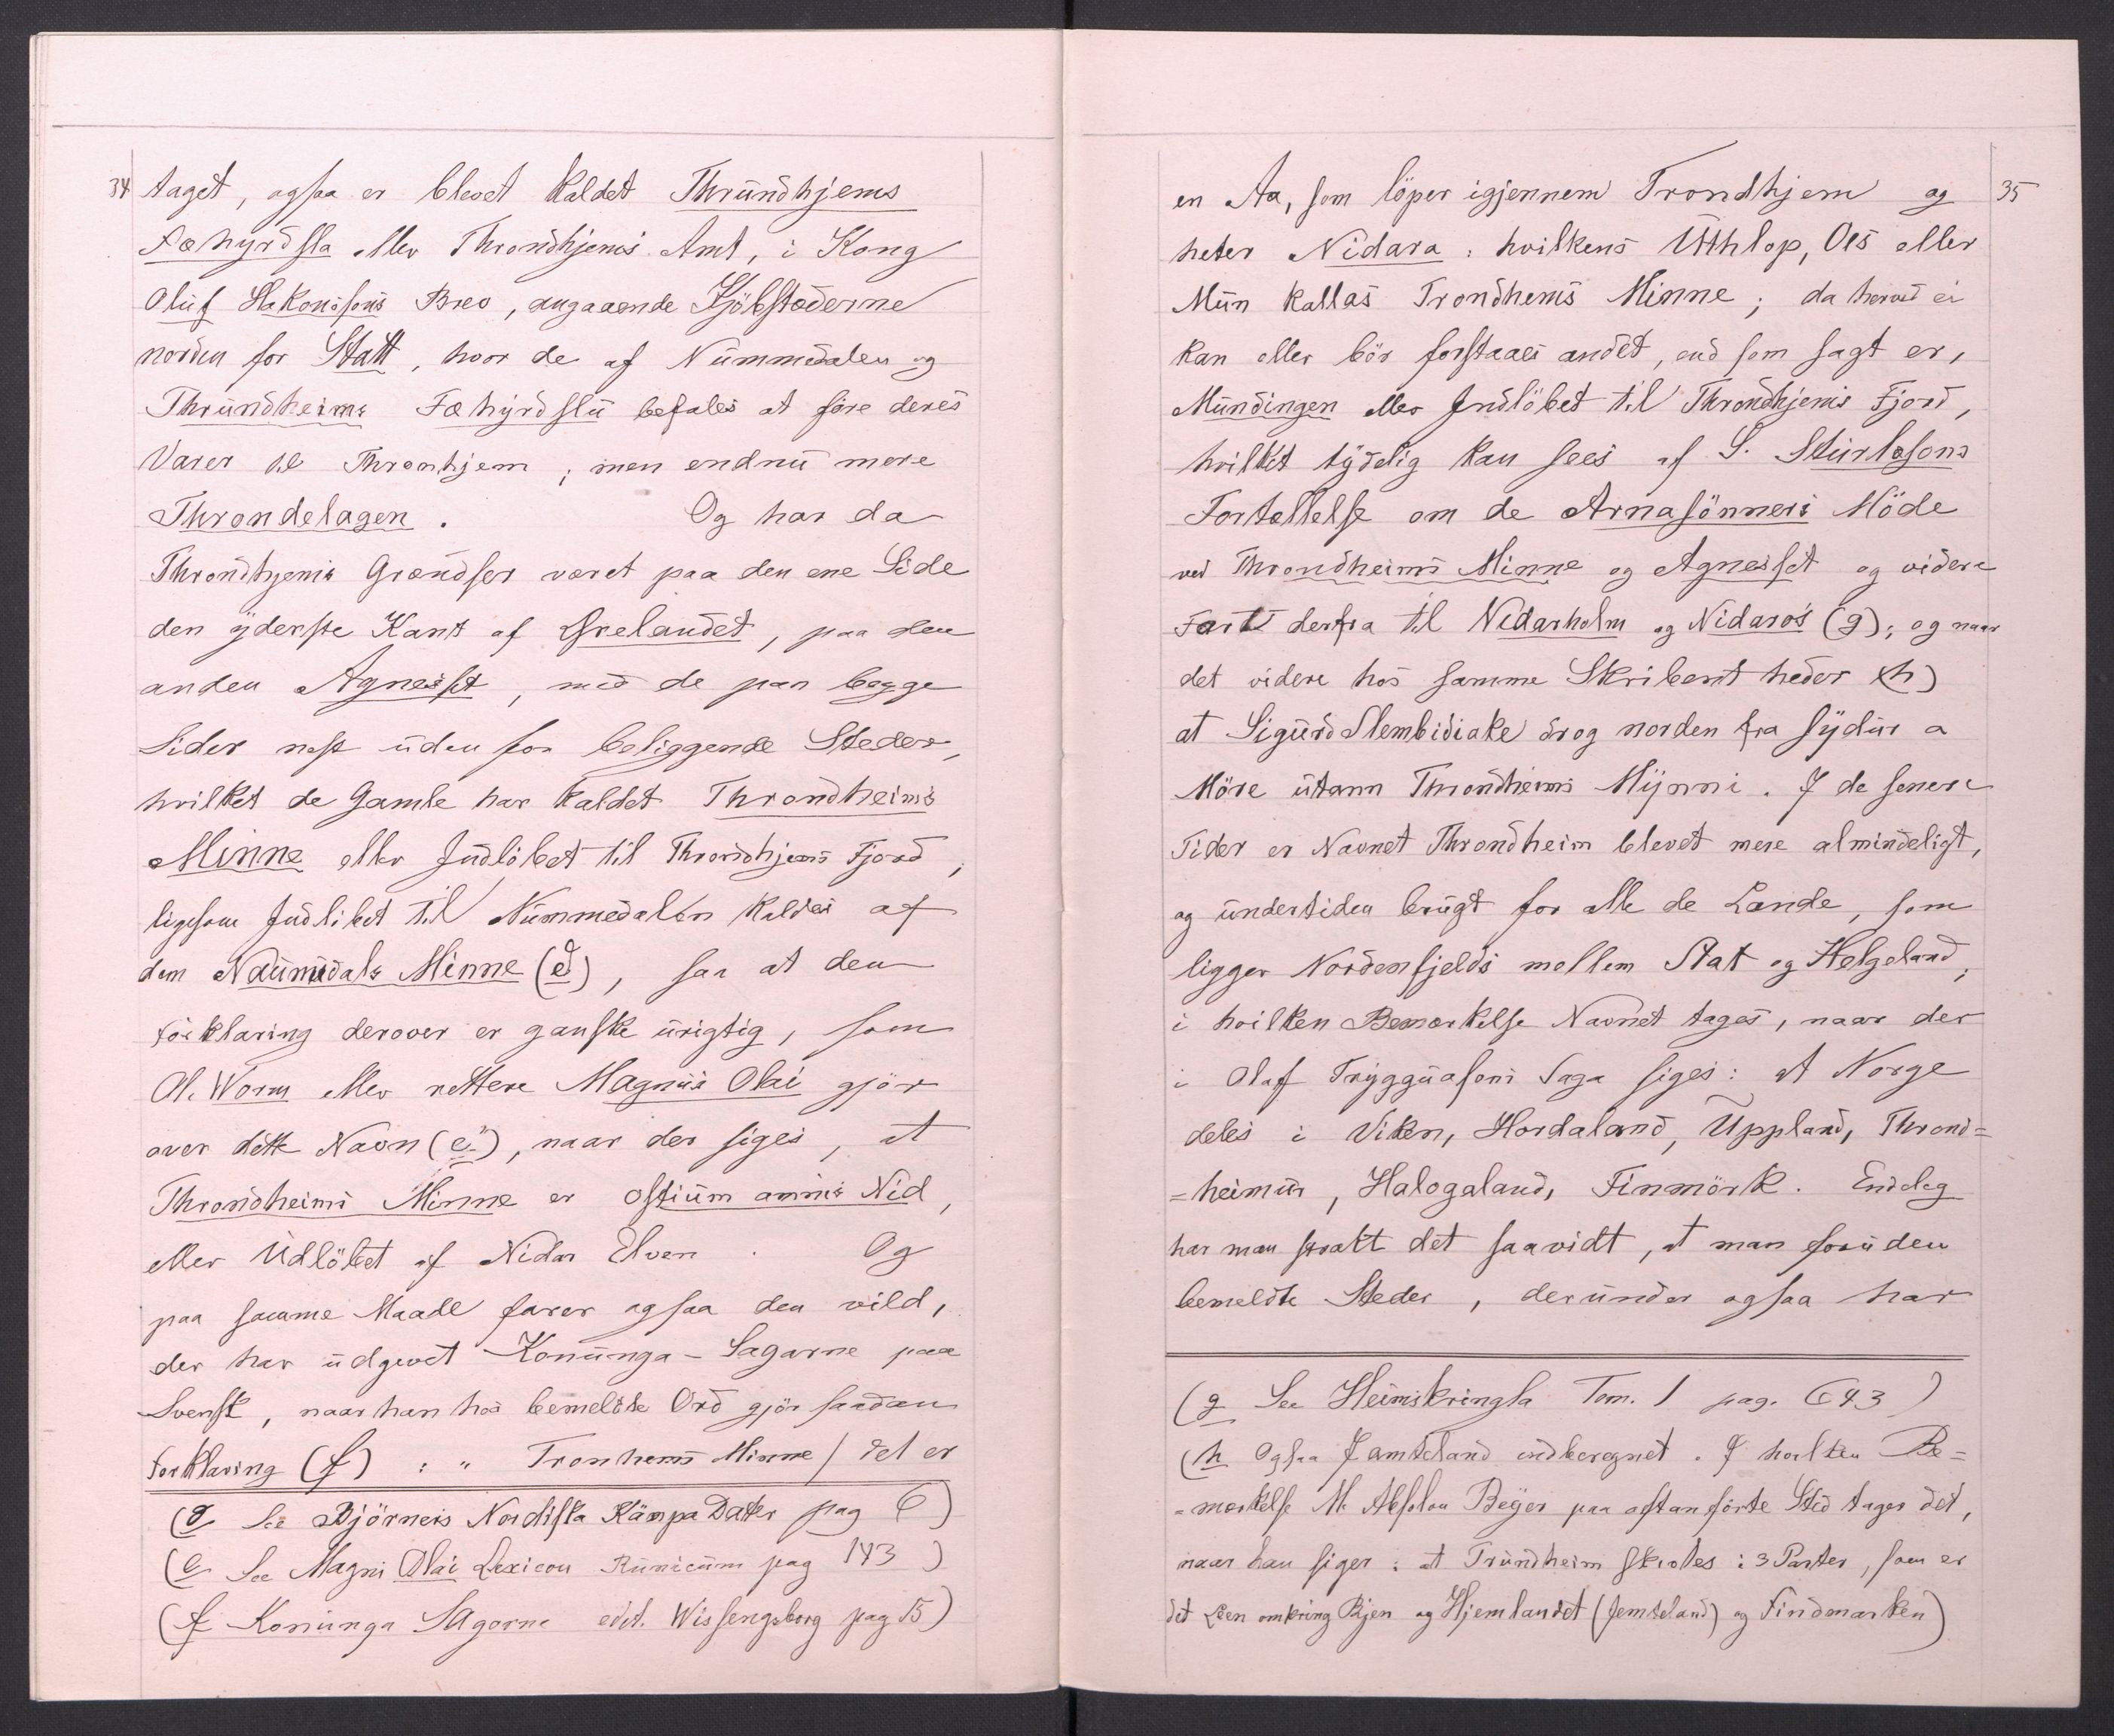 34
taget, ogsaa er blevet kaldet Thrundhjems
Fæhyrdsla eller Throndhjems Amt, i Kong
Oluf Hakonssöns Brev, angaaende Kjöbstæderne
norden for Statt, hvor de af Nummedalen og
Thrundheims Fæhyrdslu befales at före deres
Varer til Thronhjem; men endnu mere
Throndelagen. Og har da
Throndhjems Grændser været paa den ene Side
den yderste Kant af Ørelandet, paa den
anden Agnesset, med de paa begge
Sider næst uden for beliggende Steder,
hvilket de Gamle har kaldet Throndheims
Minne eller Indlöbet til Throndhjems Fjord,
ligesom Indlöbet til Nummedalen kaldes af
dem Naumudals Minne (d), saa at den
Forklaring derover er ganske urigtig, som
Ol. Worm eller rettere Magnus Olai gjör
over dette Navn (e), naar der siges, at
Throndheims Minne er ostium amnis Nid,
eller Udlöbet af Nidar Elven. Og
paa samme Maade farer ogsaa den vild,
der har udgivet Konunga-Sagarne paa
Svensk, naar han hos bemeldte Ord gjör saadan
Forklaring (f) : " Tronhems Minne / det er
(d See Björners Nordiska Kämpa Dater pag 6)
(e See Magni Olai Lexicon Runicum pag 143)
(f Konunga Sagorna edit. Wissengsborg pag 15)
35
en Aa, som löper igjennem Trondhjem og
heter Nidara : hvilkens Uthlop, Oes eller
Mun kallas Trondhems Minne; da herved ei
kan eller bör forstaaes andet, end som sagt er,
Mundingen eller Indlöbet til Throndhjems Fjord,
hvilket tydelig kan sees af S. Sturlesons
Fortællelse om de Arnasönners Möde
ved Throndheims Minne og Agnesset og videre
Fart derfra til Nidarholm og Nidaros (g); og naar
det videre hos samme Skribent heder (h)
at Sigurd Slembidiake drog norden fra sydur a
Möre utann Throndheims Mynni. I de senere
Tider er Navnet Throndheim blevet mere almindeligt,
og undertiden brugt for alle de Lande, som
ligger Nordenfjelds mellem Stat og Helgeland,
i hvilken Bemærkelse Navnet tages, naar der
i Olaf Tryggvasons Saga siges: at Norge
deles i Viken, Hordaland, Uppland, Thrond=
=heimur, Halogaland, Finmörk. Endelig
har man strakt det saavidt, at man foruden
bemeldte Steder, derunder ogsaa har
(g See Heimskringla Tom. 1 pag. 643)
(h Ogsaa Jamteland indberegnet. I hvilken Be=
=mærkelse M. Absolon Beyer paa oftanförte Sted tager det,
naar han siger: at Trundheim skiotes i 3 Parter, som er
det Leen omkring Byen og Hjemlandet (Jemteland) og Findmarken)